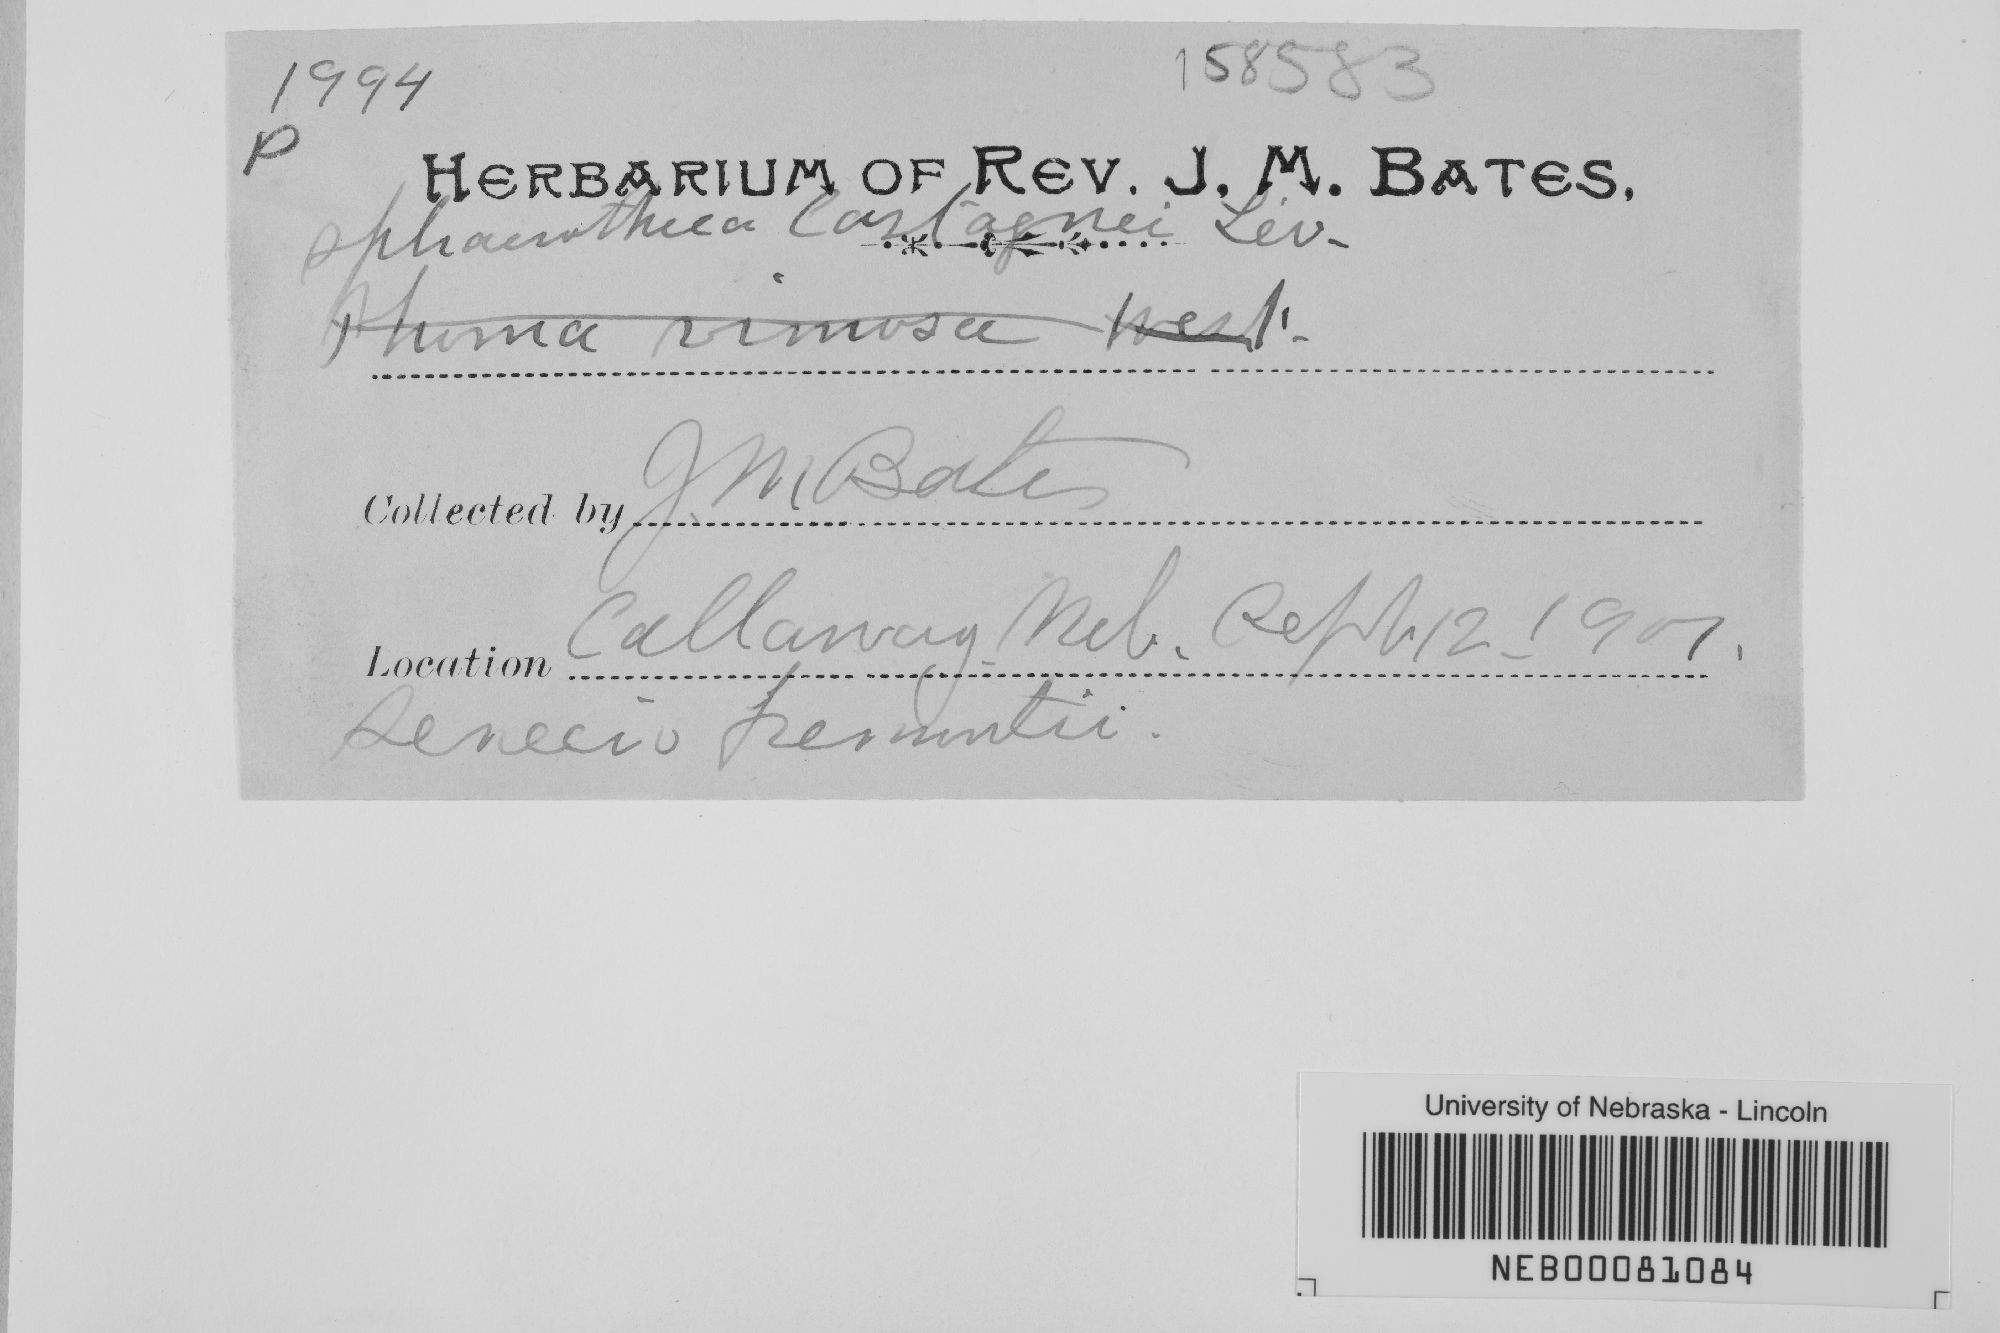 1994
158583
P
HERBARIUM OF REV. J. M. BATES.
Sphaerotheca Castagnei Lév.
Phoma rimosa West.
Collected by J. M. Bates
Location Callaway Neb. Sept 12 1901.
Senecio fremontii.
University of Nebraska - Lincoln
NEB00081084